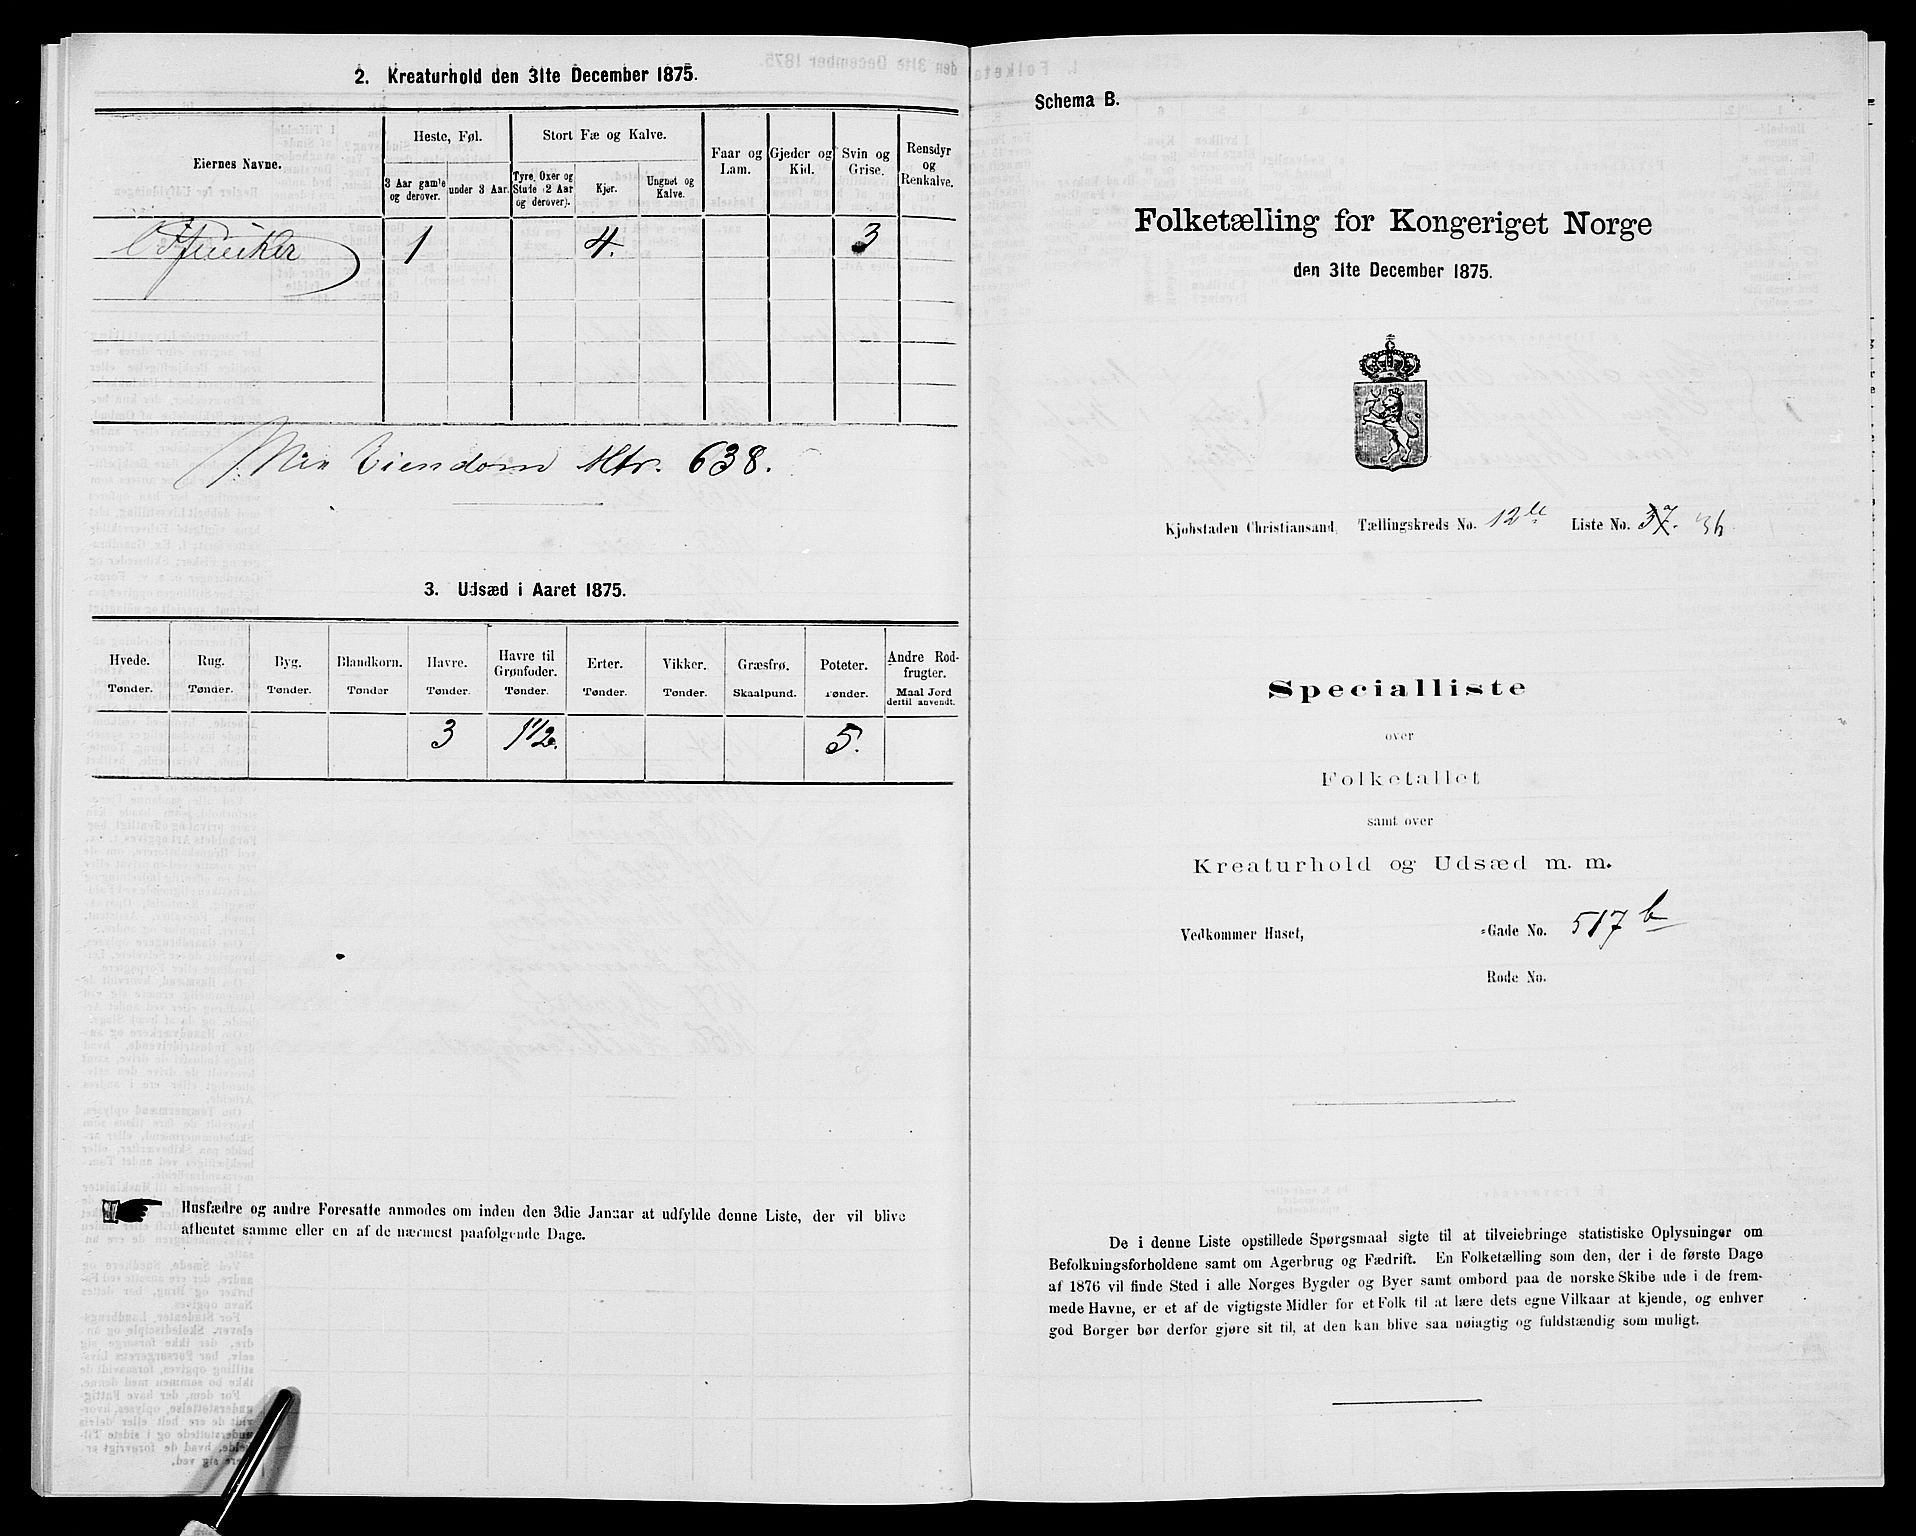 2. Kreaturhold den 31te December 1875.
Eiernes Navne.
Heste, Føl.
Stort Fæ og Kalve.
Faar og Lam.
Gjeder og Kid.
Svin og Grise.
Rensdyr og Renkalve.
3 Aar gamle og derover.
under 3 Aar.
Tyre, Oxer og Stude (2 Aar og derover).
Kjør.
Ungnøt og Kalve.
1 4. 3
Min Eiendom Mtr. 638.
3. Udsæd i Aaret 1875.
Hvede. Rug. Byg. Blandkorn. Havre. Havre til Grønfoder. Erter. Vikker. Græsfrø. Poteter. Andre Rodfrugter.
Tønder. Tønder. Tønder. Tønder Tønder. Tønder. Tønder. Tønder. Skaalpund. Tønder. Maal Jord dertil anvendt.
3 1 1/2. 5.
Husfædre og andre Foresatte anmodes om inden den 3die Januar at udfylde denne Liste, der vil blive
afhentet samme eller en af de nærmest paafølgende Dage.
Schema B.
Folketælling for Kongeriget Norge
den 31te December 1875.
Kjøbstaden Christiansand, Tællingskreds No. 12te Liste No. 37. 36
Specialliste
over
Folketallet
samt over
Kreaturhold og Udsæd m. m.
Vedkommer Huset, -Gade No. 517 b
Rode No.
De i denne Liste opstillede Spørgsmaal sigte til at tilveiebringe statistiske Oplysninger om
Befolkningsforholdene samt om Agerbrug og Fædrift. En Folketælling som den, der i de første Dage
af 1876 vil finde Sted i alle Norges Bygder og Byer samt ombord paa de norske Skibe ude i de frem-
mede Havne, er et af de vigtigste Midler for et Folk til at lære dets egne Vilkaar at kjende, og enhver
god Borger bør derfor gjøre sit til, at den kan blive saa nøiagtig og fuldstændig som muligt.